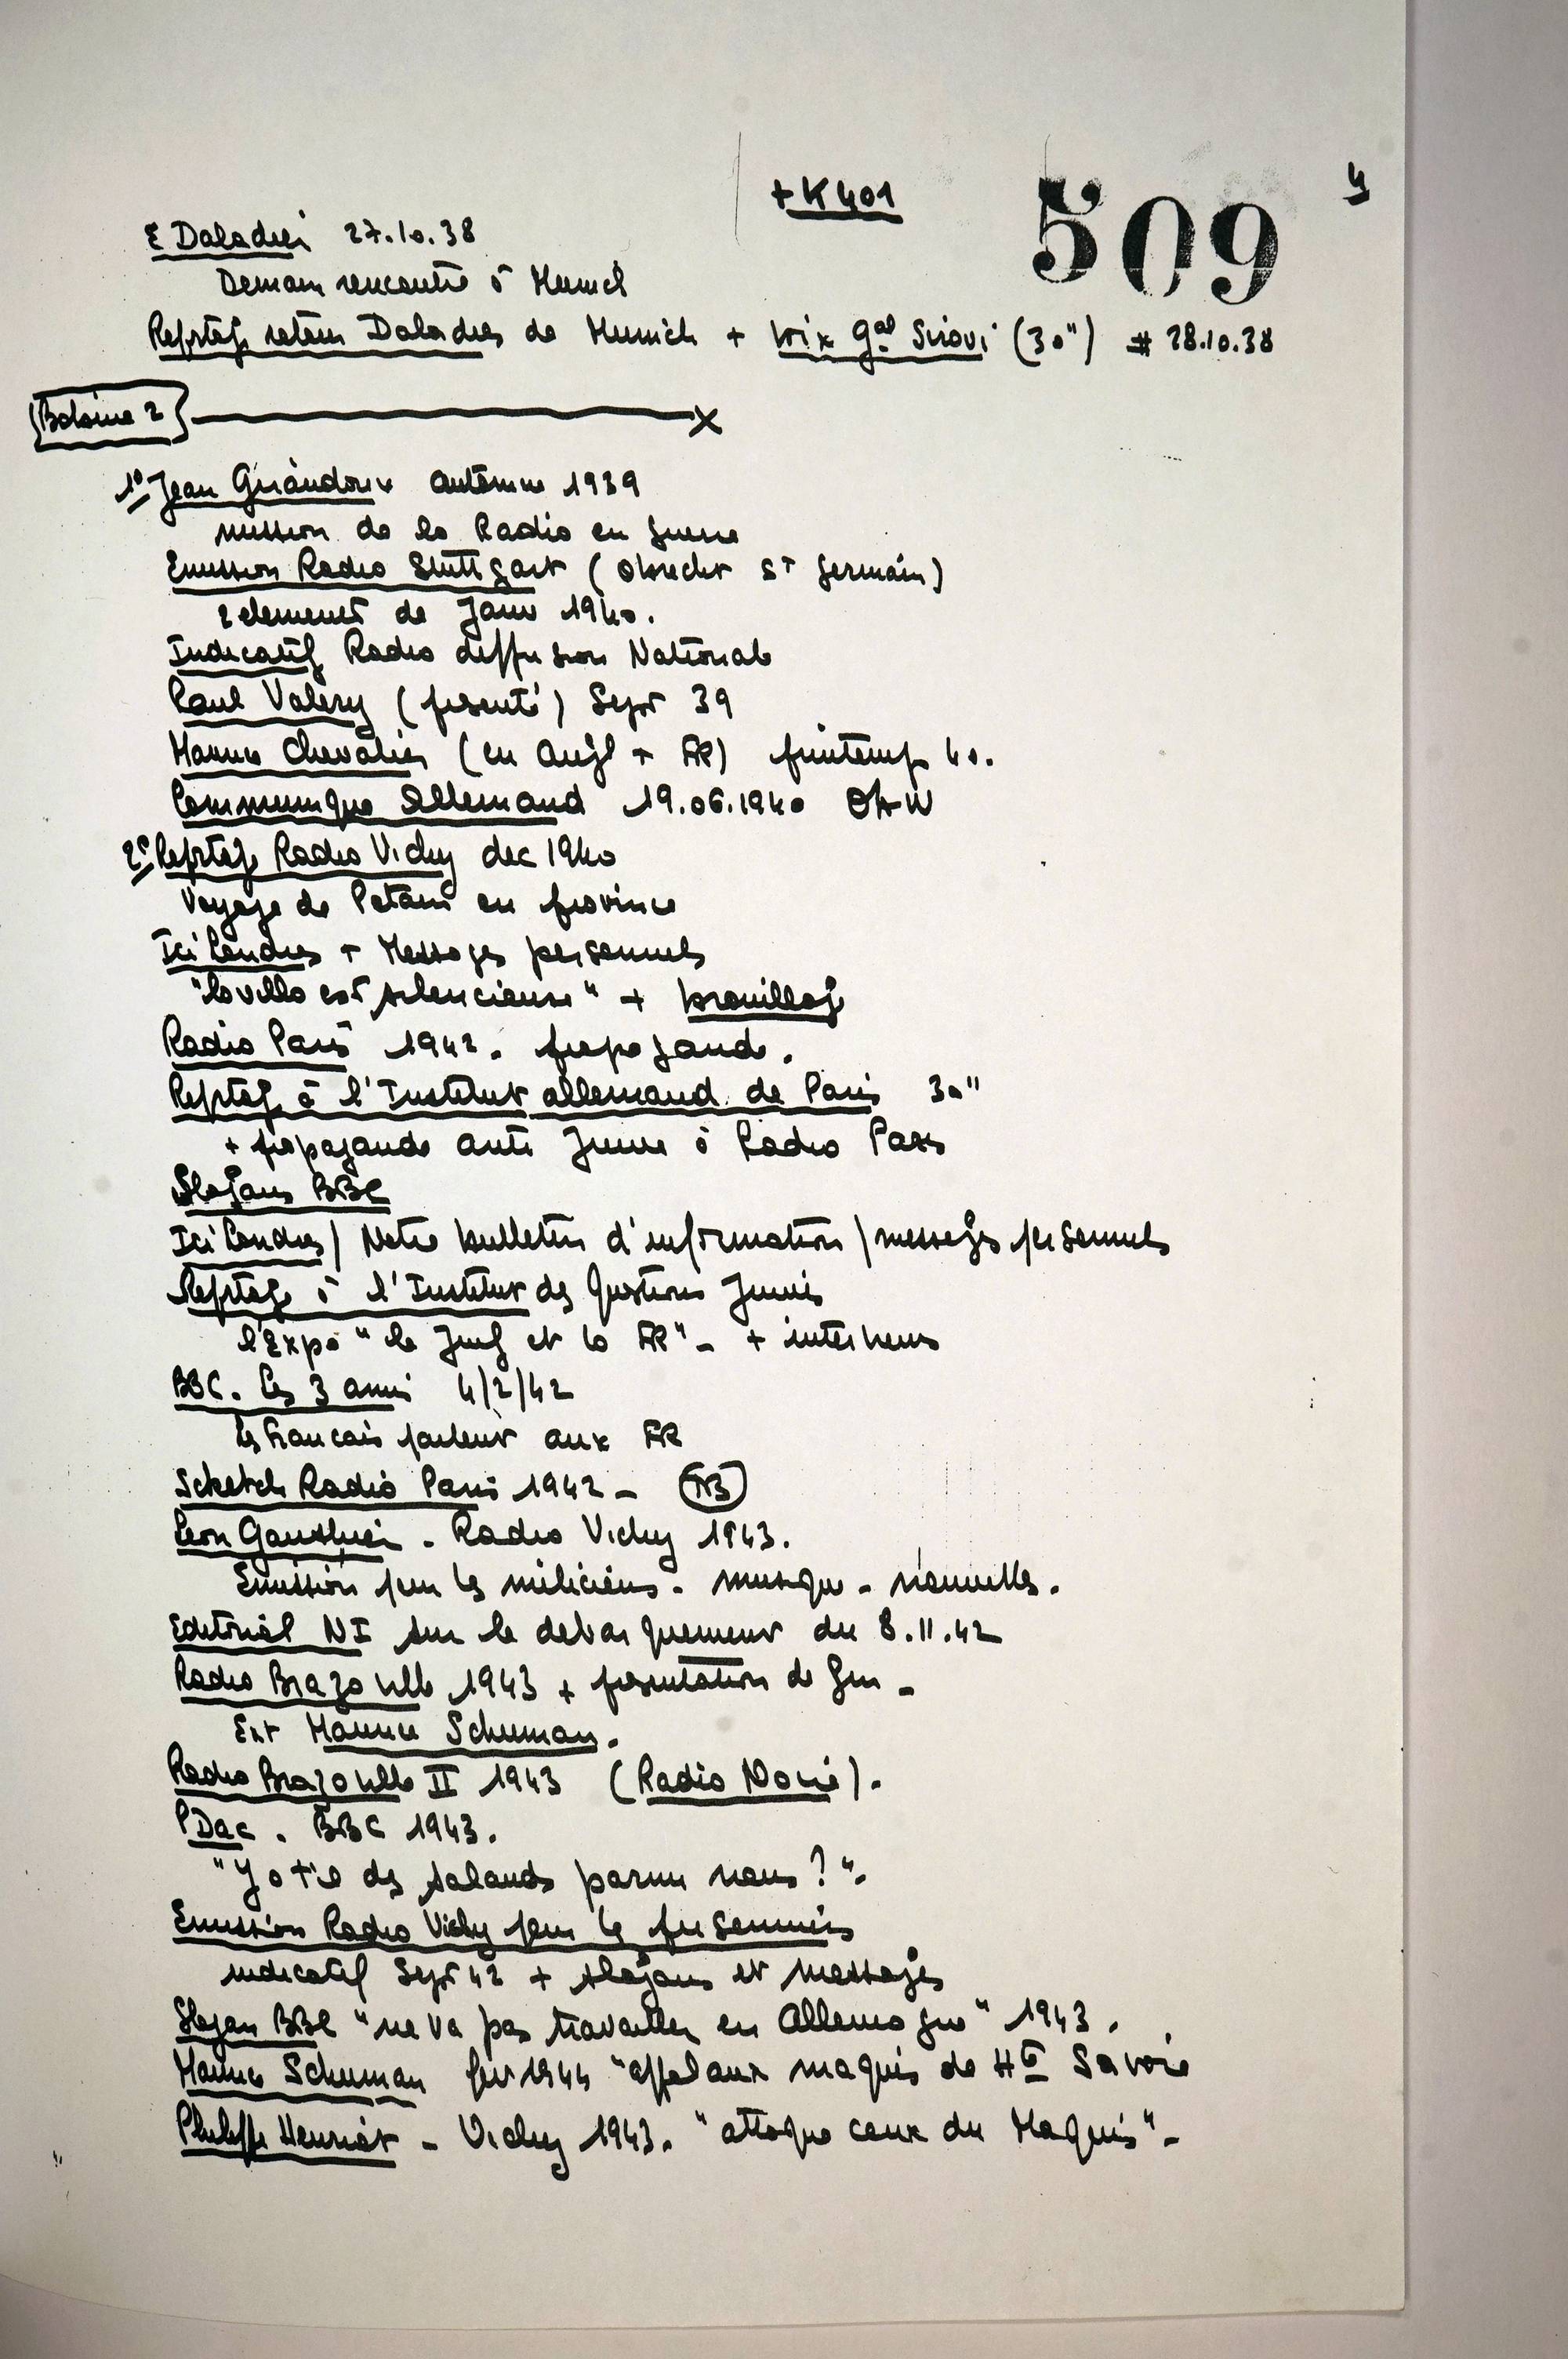 + K401
509
4
E Daladier 27.10.38
Demain rencontre à Munich
Reptage retour Daladier de Munich + voix Gal Sirovi (30") # 28.10.38
Bobine 2
1° Jean Giraudoux automne 1939
mission de la Radio en guerre
Emission Radio Stuttgart (Obrecht St Germain)
2 elements de Janv 1940.
Indicatif Radio diffusion Nationale
Paul Valery (presenté) Sept 39
Maurice Chevalier (en Angl + FR) printemps 40.
Communique Allemand 19.06.1940 OKW
2° Reptage Radio Vichy dec 1940
Voyage de Petain en province
Ici Londres + Messages personnels
"la ville est silencieuse" + brouillage
Radio Paris 1942. propagande.
Reptage à l'Institut allemand de Paris 30"
+ propagande anti Juive à Radio Paris
Slogans BBC
Ici Londres / Notre bulletin d'information / messages personnels
Reptage à l'Institut des Questions Juives
l'Expo "le Juif et la FR" - + interviews
BBC. Les 3 amis 4/2/42
les Francais parlent aux FR
Scketch Radio Paris 1942 - TB
Leon Gaulthier. Radio Vichy 1943.
Emission pour les miliciens - musique - nouvelles.
Editorial NI sur le debarquement du 8.11.42
Radio Brazaville 1943 + presentation de
Ext Maurice Schuman.
Radio Brazaville II 1943 (Radio Novie).
P Dac. BBC 1943.
"Y a t'il des salauds parmi nous ?".
Emission Radio Vichy pour les prisonniers
indicatif Sept 42 + slogans et messages
Slogan BBC "ne va pas travailler en Allemagne" 1943.
Maurice Schuman fev 1944 "appel aux maquis de Hte Savoie
Philippe Henriot - Vichy 1943. "attaque ceux du Maquis"-